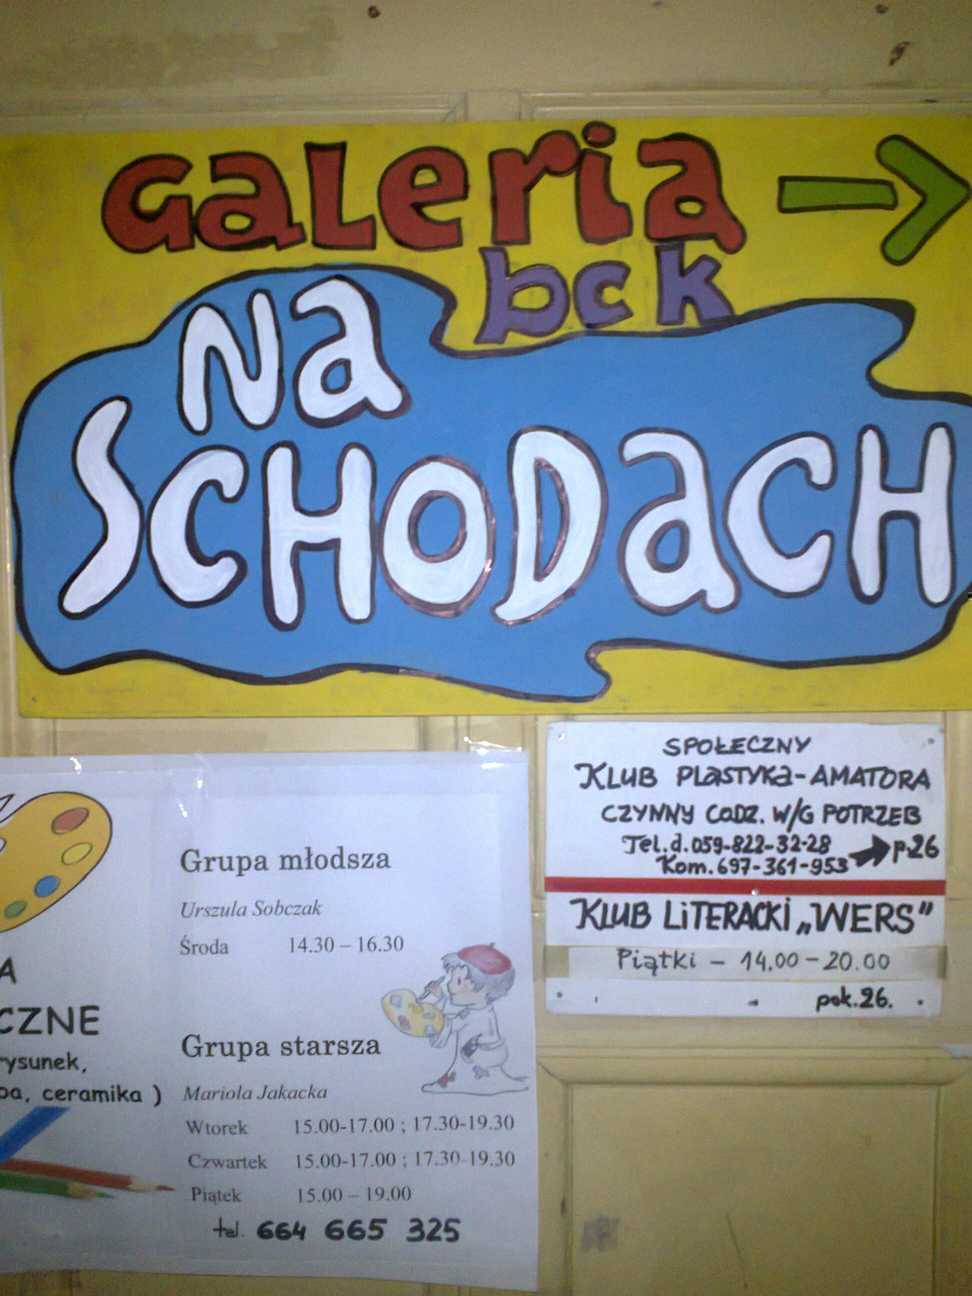 Galeria
bck
Na
SCHODaCH
SPOŁECZNY
KLUB PLASTYKA-AMATORA
CZYNNY CODZ. W/G POTRZEB
Tel.d.059-822-32-28
Kom.697-361-953
p.26
KLUB LiTERACKi „WERS”
Piątki – 14.00-20.00
pok.26.
A
CZNE
rysunek,
ba, ceramika )
Grupa młodsza
Urszula Sobczak
Środa 14.30 – 16.30
Grupa starsza
Mariola Jakacka
Wtorek 15.00-17.00 ; 17.30-19.30
Czwartek 15.00-17.00 ; 17.30-19.30
Piątek 15.00 – 19.00
tel. 664 665 325